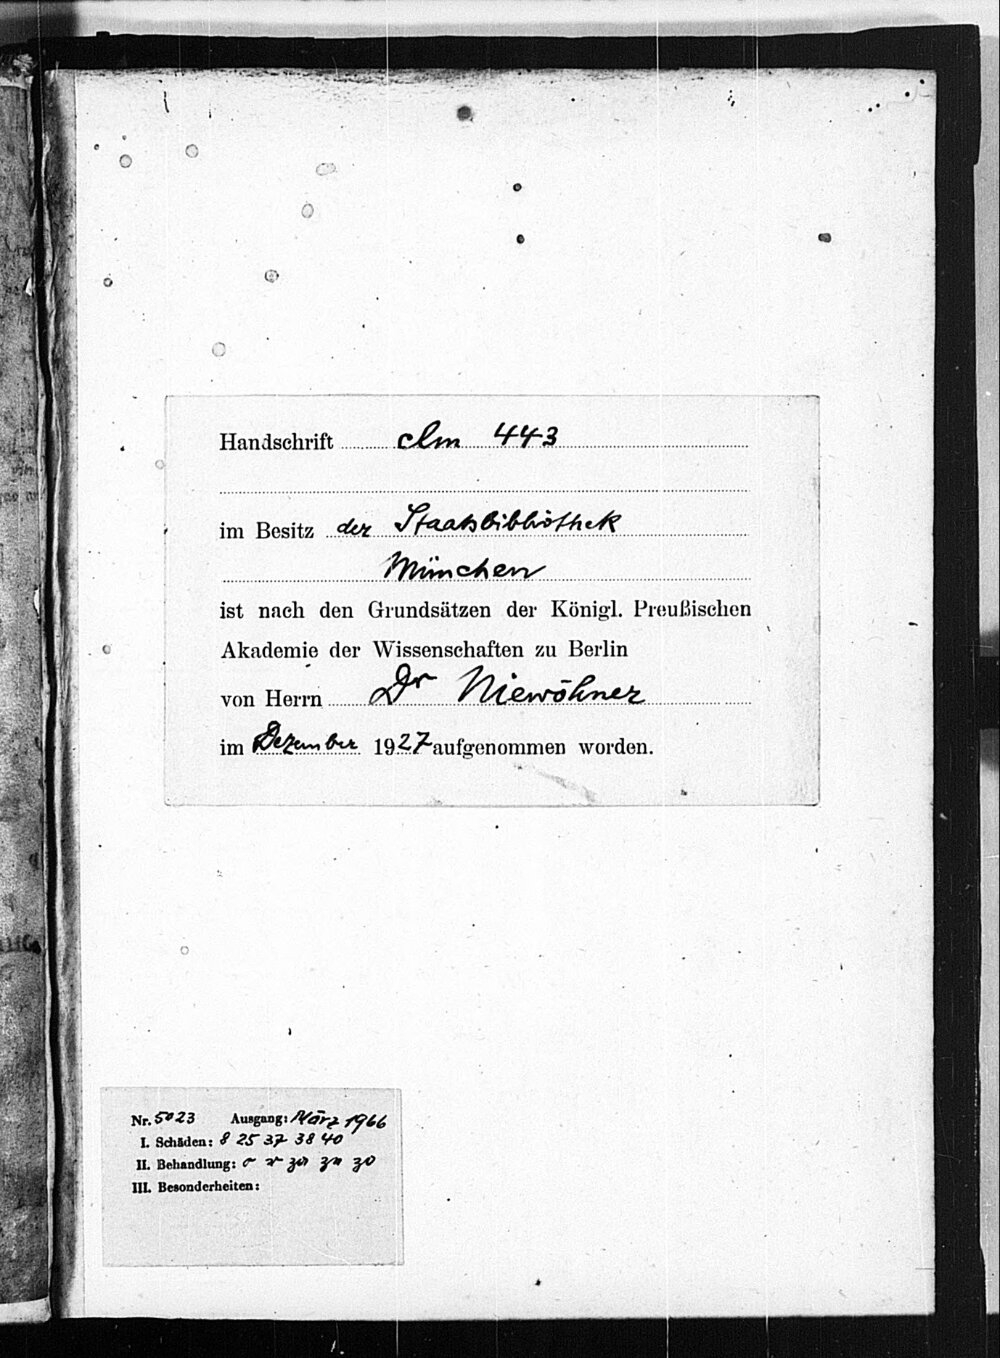 Handschrift clm 443
im Besitz der Staatsbibliothek
München
ist nach den Grundsätzen der Königl. Preußischen
Akademie der Wissenschaften zu Berlin
von Herrn Dr Niewöhner
im Dezember 1927 aufgenommen worden.
Nr. 5023 Ausgang: März 1966
I. Schäden: 8 25 37 38 40
II. Behandlung:
III. Besonderheiten: